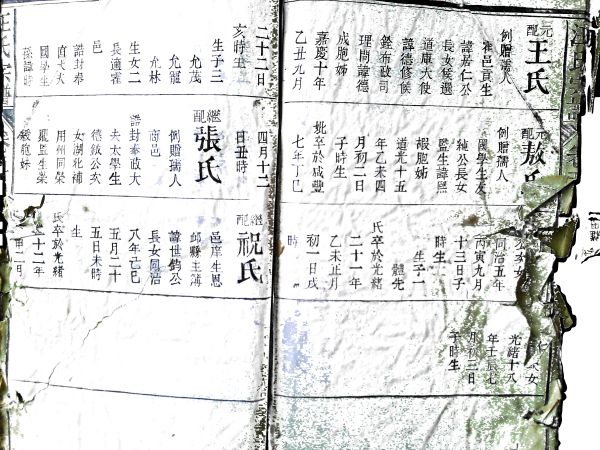 元配王氏
例贈孺人
霍邑貢生
諱嘉仁公
長女候選
道康大俊
諱德修候
銓布政司
理問諱德
成胞姊
嘉慶十年
乙丑九月
元配敖氏
例贈孺人
國學生友
純公長女
監生諱熙
嘏胞姊
道光十五
年乙未四
月初二日
子時生
卒於咸豐
七年丁巳
公女女
同治五年
丙寅九月
十三日子
時生
生子一
體先
氏卒於光緒
二十一年
乙未正月
初一日戌
時
女
光緒十八
年壬辰七
月初三日
子時生
汪氏宗譜
二十二日
亥時生
生子三
允茂
允龍
允林
生女二
長適霍
邑
誥封奉
直大夫
國學生
孫諱時
四月十二
日丑時
繼配張氏
例贈孺人
商邑
誥封奉政大
夫太學生
德銳公女
女湖北補
用州同榮
監生榮
胞妹
繼配祝氏
邑庠生恩
邱縣主簿
諱世鈞公
長女同治
八年己巳
五月二十
五日未時
生
氏卒於光緒
二十二年
申二月